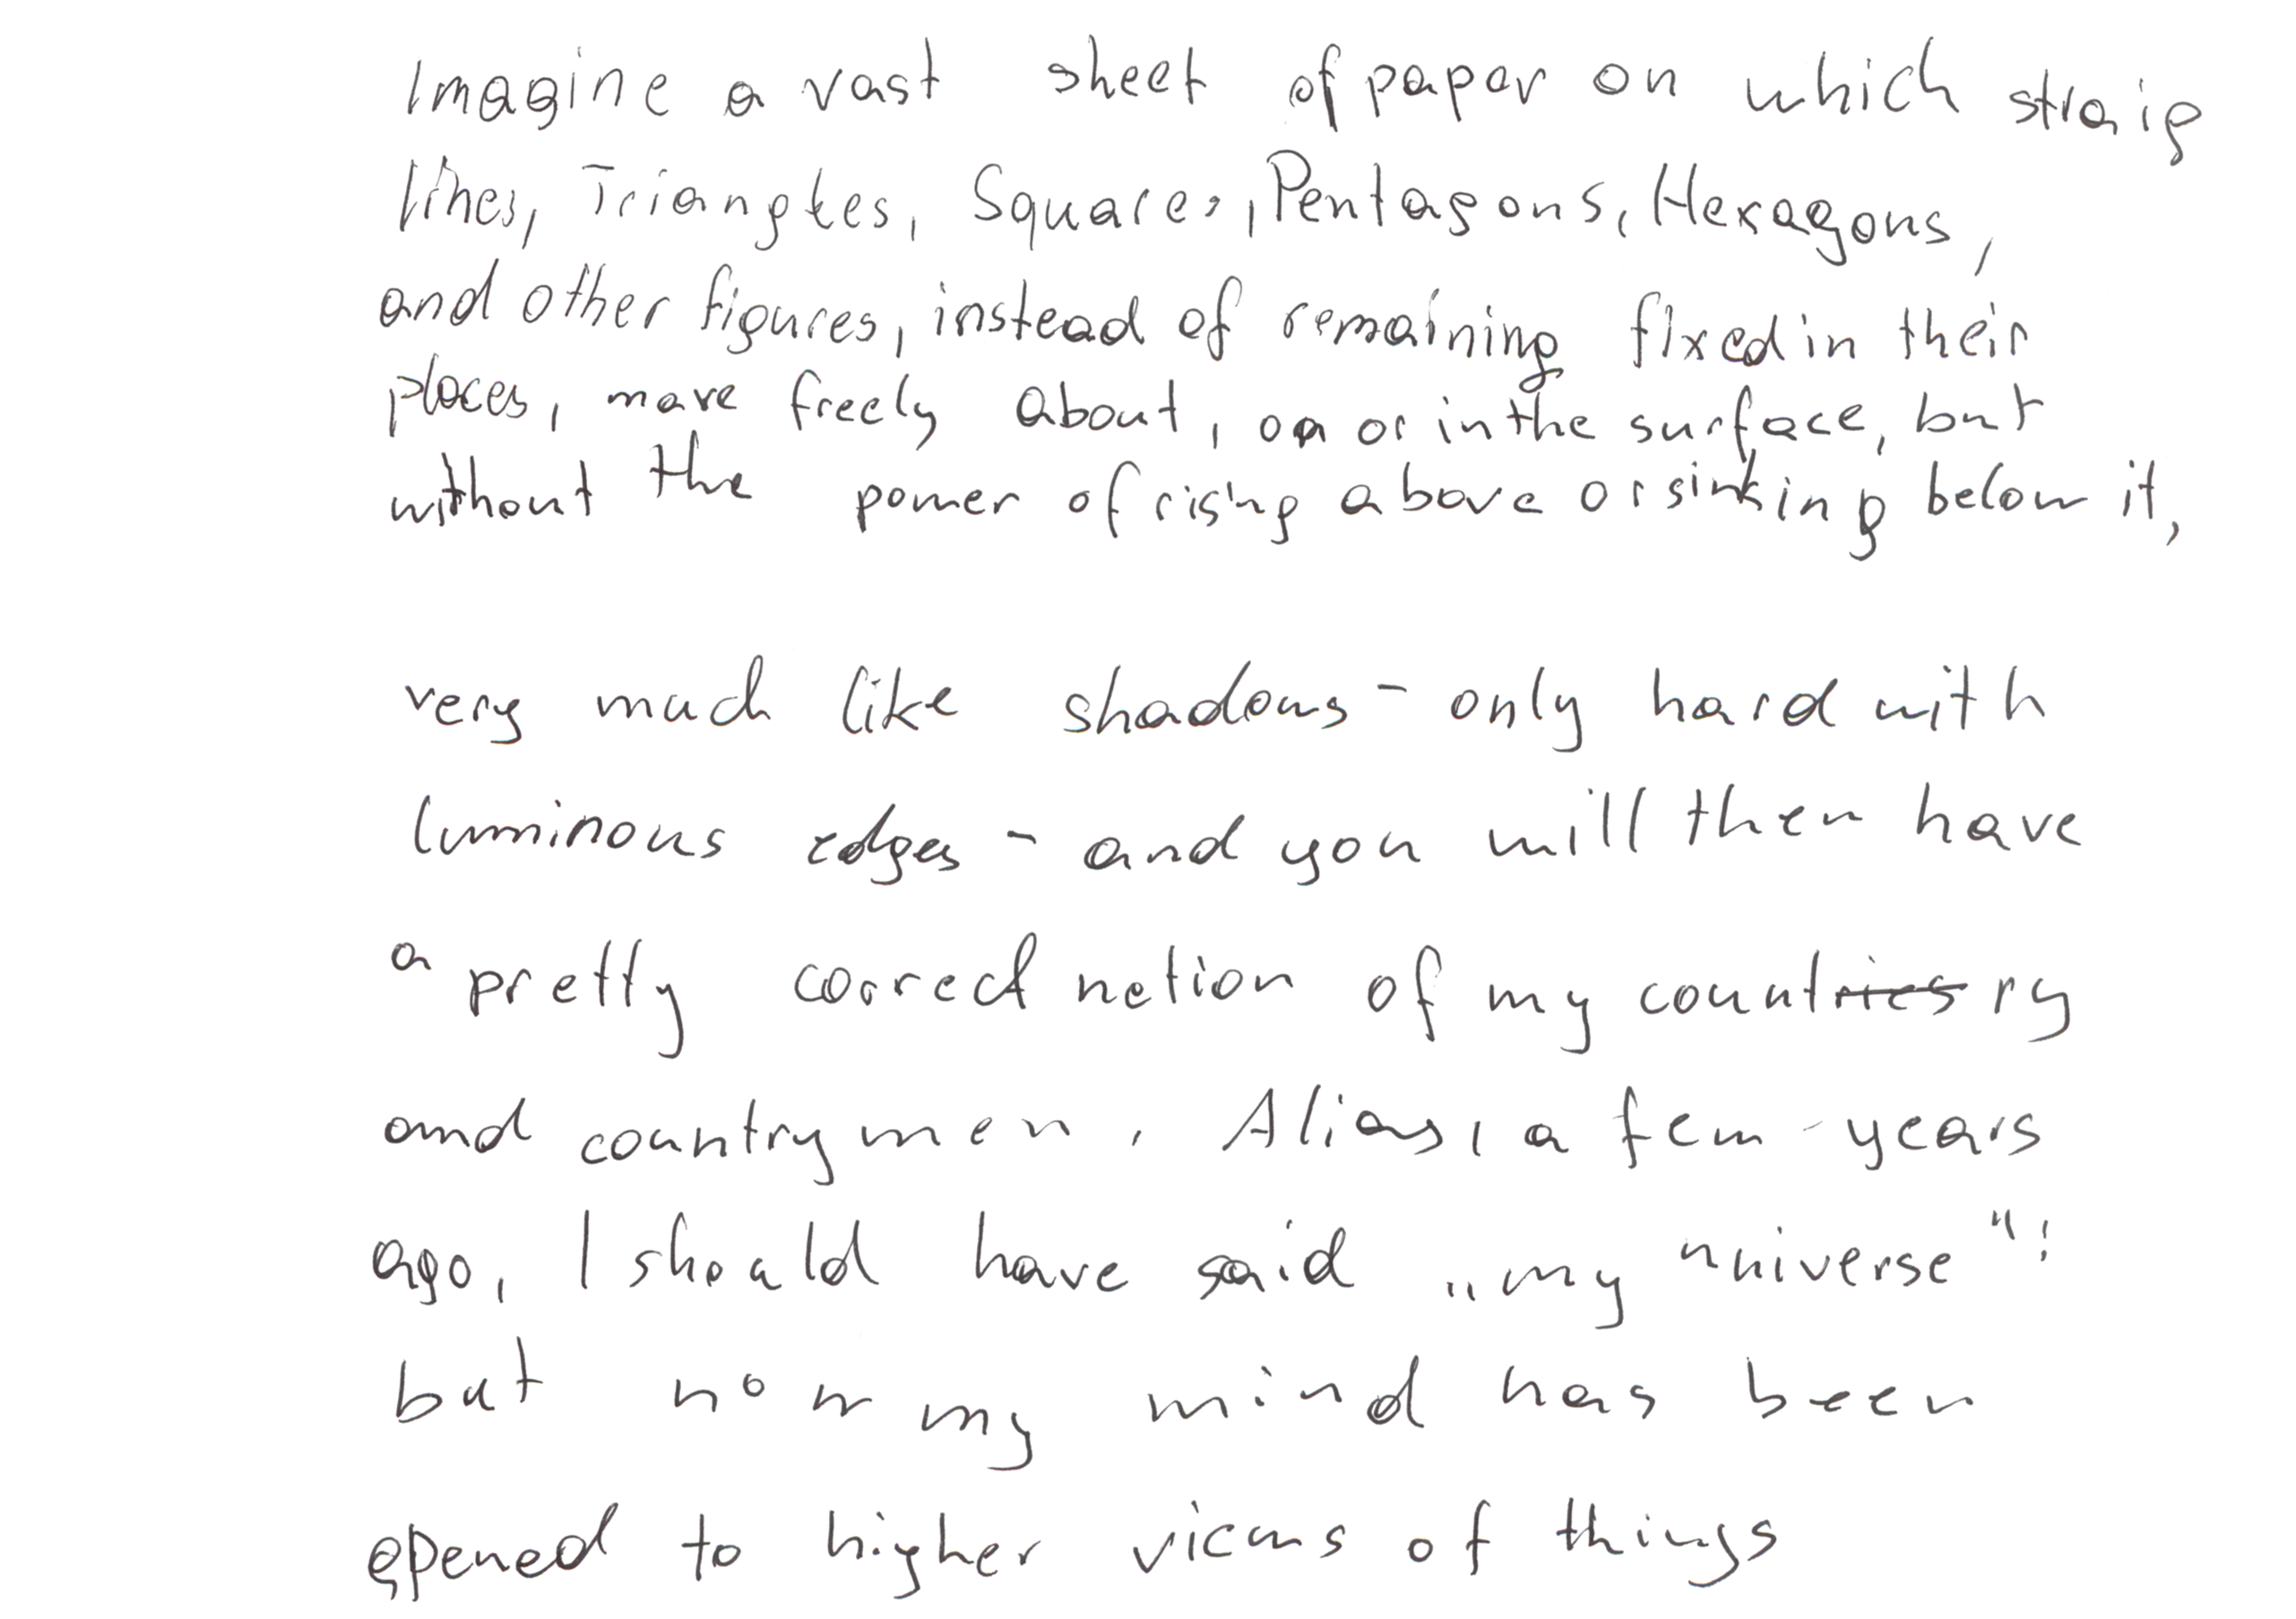 Imagine a vast sheet of paper on which straig
lines, Triangles, Squares, Pentagons, Hexagons,
and other figures, instead of remaining fixed in their
places, move freely about, on or in the surface, but
without the power of rising above or sinking below it,
very much like shadows - only hard with
luminous edges - and you will then have
a pretty correct notion of my countries ry
and countrymen. Alias, a few years
ago, I should have said „my universe“:
but now my mind has been
opened to higher views of things